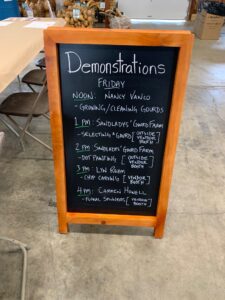 Demonstrations
FRIDAY
NOON: NANCY VANCO
- GROWING/CLEANING GOURDS
1 PM: SANDLADYS' GOURD FARM
- SELECTING A GOURD [OUTSIDE
VENDOR
BOOTH]
2 PM: SANDLADYS' GOURD FARM
- DOT PAINTING [OUTSIDE
VENDOR
BOOTH]
3 PM: LYN
- CHIP CARVING [VENDOR
BOOTH]
4 PM: CARMEN HOWELL
- FLORAL [VENDOR
BOOTH]